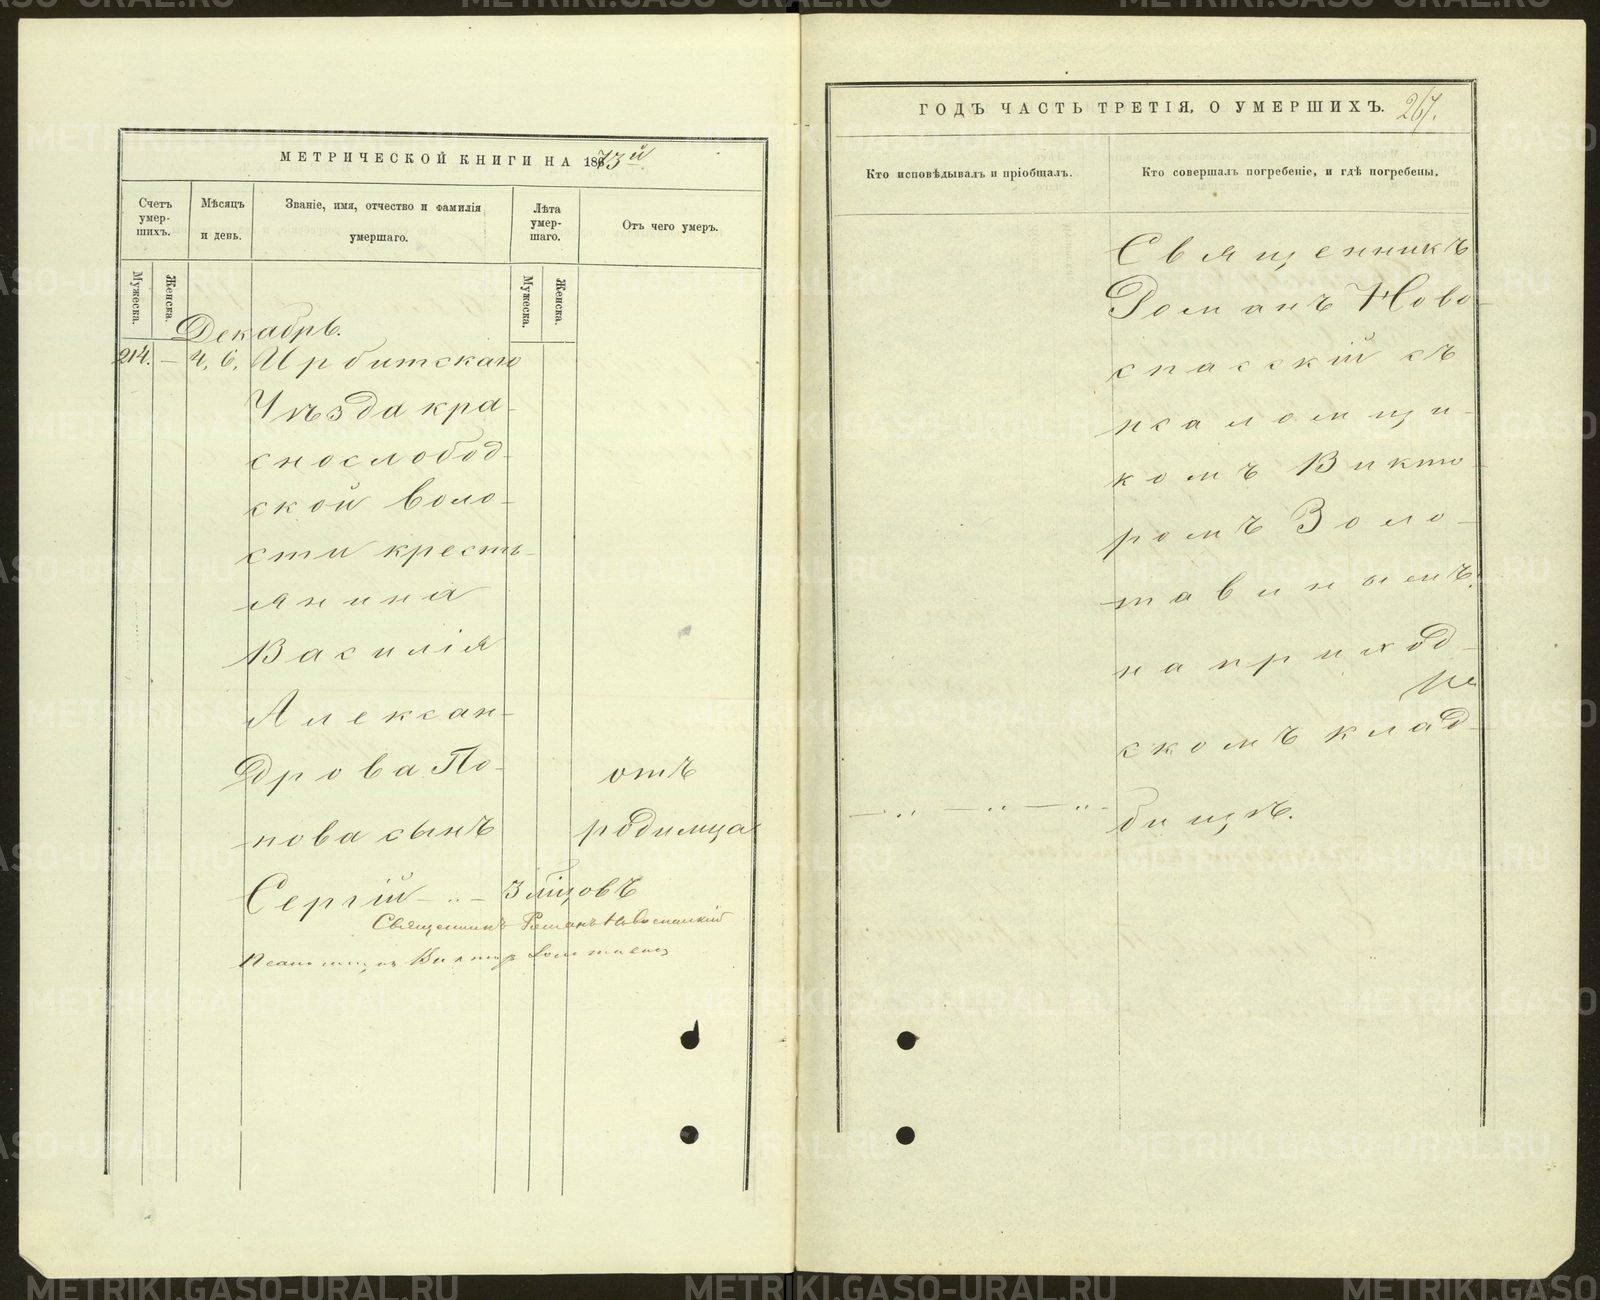 МЕТРИЧЕСКОЙ КНИГИ НА 1873й
Счетъ умер-шихъ.
Мѣсяцъ и день.
Званіе, имя, отчество и фамилія умершаго.
Лѣта умер-шаго.
Отъ чего умеръ.
Мужеска.
Женска.
Мужеска.
Женска.
Декабрь.
214. — 4, 6, Ирбитскаго
Уѣзда кра-
снослобод-
ской воло-
сти кресть-
янина
Василія
Алексан-
дрова По-
отъ
нова сынъ
родимца
Сергій — 3 мѣсяцовъ
Священникъ Романъ Новоспасскій
Псаломщикъ Викторъ Золотавинъ
ГОДЪ ЧАСТЬ ТРЕТІЯ, О УМЕРШИХЪ.
267.
Кто исповѣдывалъ и пріобщалъ.
Кто совершалъ погребеніе, и гдѣ погребены.
Священникъ
Романъ Ново-
спасскій съ
псаломщи-
комъ Викто-
ромъ Золо-
тавинымъ.
на приход-
скомъ клад-
бищѣ.
METRIKI.GASO-URAL.RU